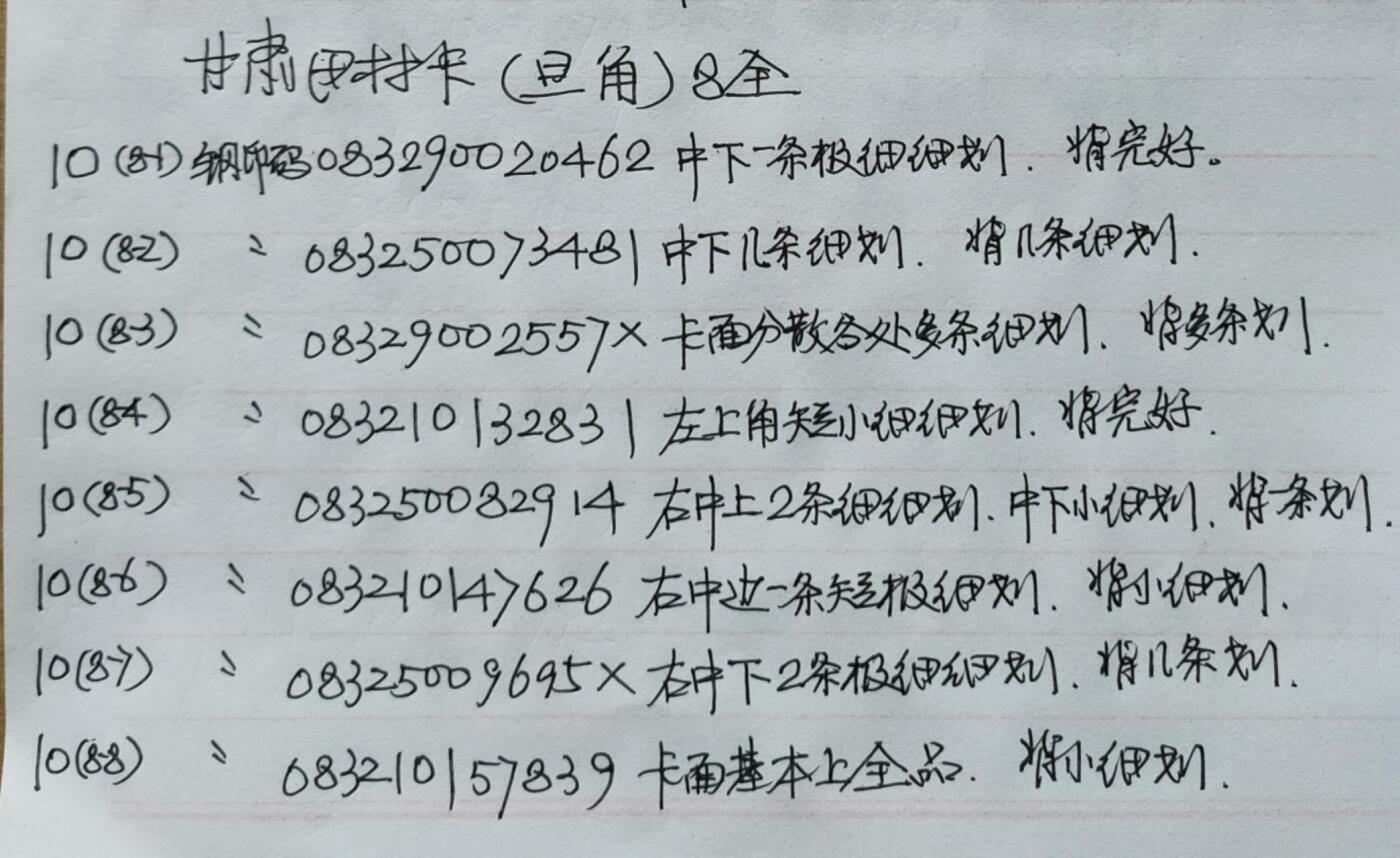 甘肃田村卡(旦角)8全
10(8-1)钢印码083290020462 中下一条极细细划. 背完好。
10(8-2) 〃 083250073481 中下几条细划. 背几条细划.
10(8-3) 〃 08329002557X 卡面分散各处多条细划. 背多条划.
10(8-4) 〃 083210132831 左上角短小细细划. 背完好.
10(8-5) 〃 083250082914 右中上2条细细划. 中下小细划. 背一条划.
10(8-6) 〃 083210147626 右中边一条短极细划. 背小细划.
10(8-7) 〃 08325009695X 右中下2条极细细划. 背几条划.
10(8-8) 〃 083210157839 卡面基本上全品. 背小细划.